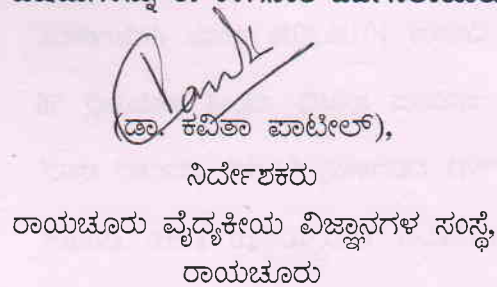 (ಡಾ. ಕವಿತಾ ಪಾಟೀಲ್),
ನಿರ್ದೇಶಕರು
ರಾಯಚೂರು ವೈದ್ಯಕೀಯ ವಿಜ್ಞಾನಗಳ ಸಂಸ್ಥೆ,
ರಾಯಚೂರು